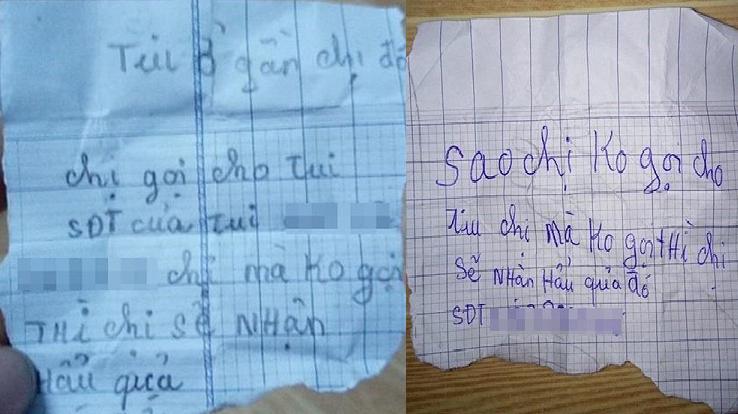 Tui ở gần chị đó
chị gọi cho tui
SĐT của tui
chị mà ko gọi
THì chị sẽ NHậN
Hẩu quả
Sao chị Ko gọi cho
chị mà Ko gọi tHì chị
Sẽ NHận Hẩu quả đó
SĐT